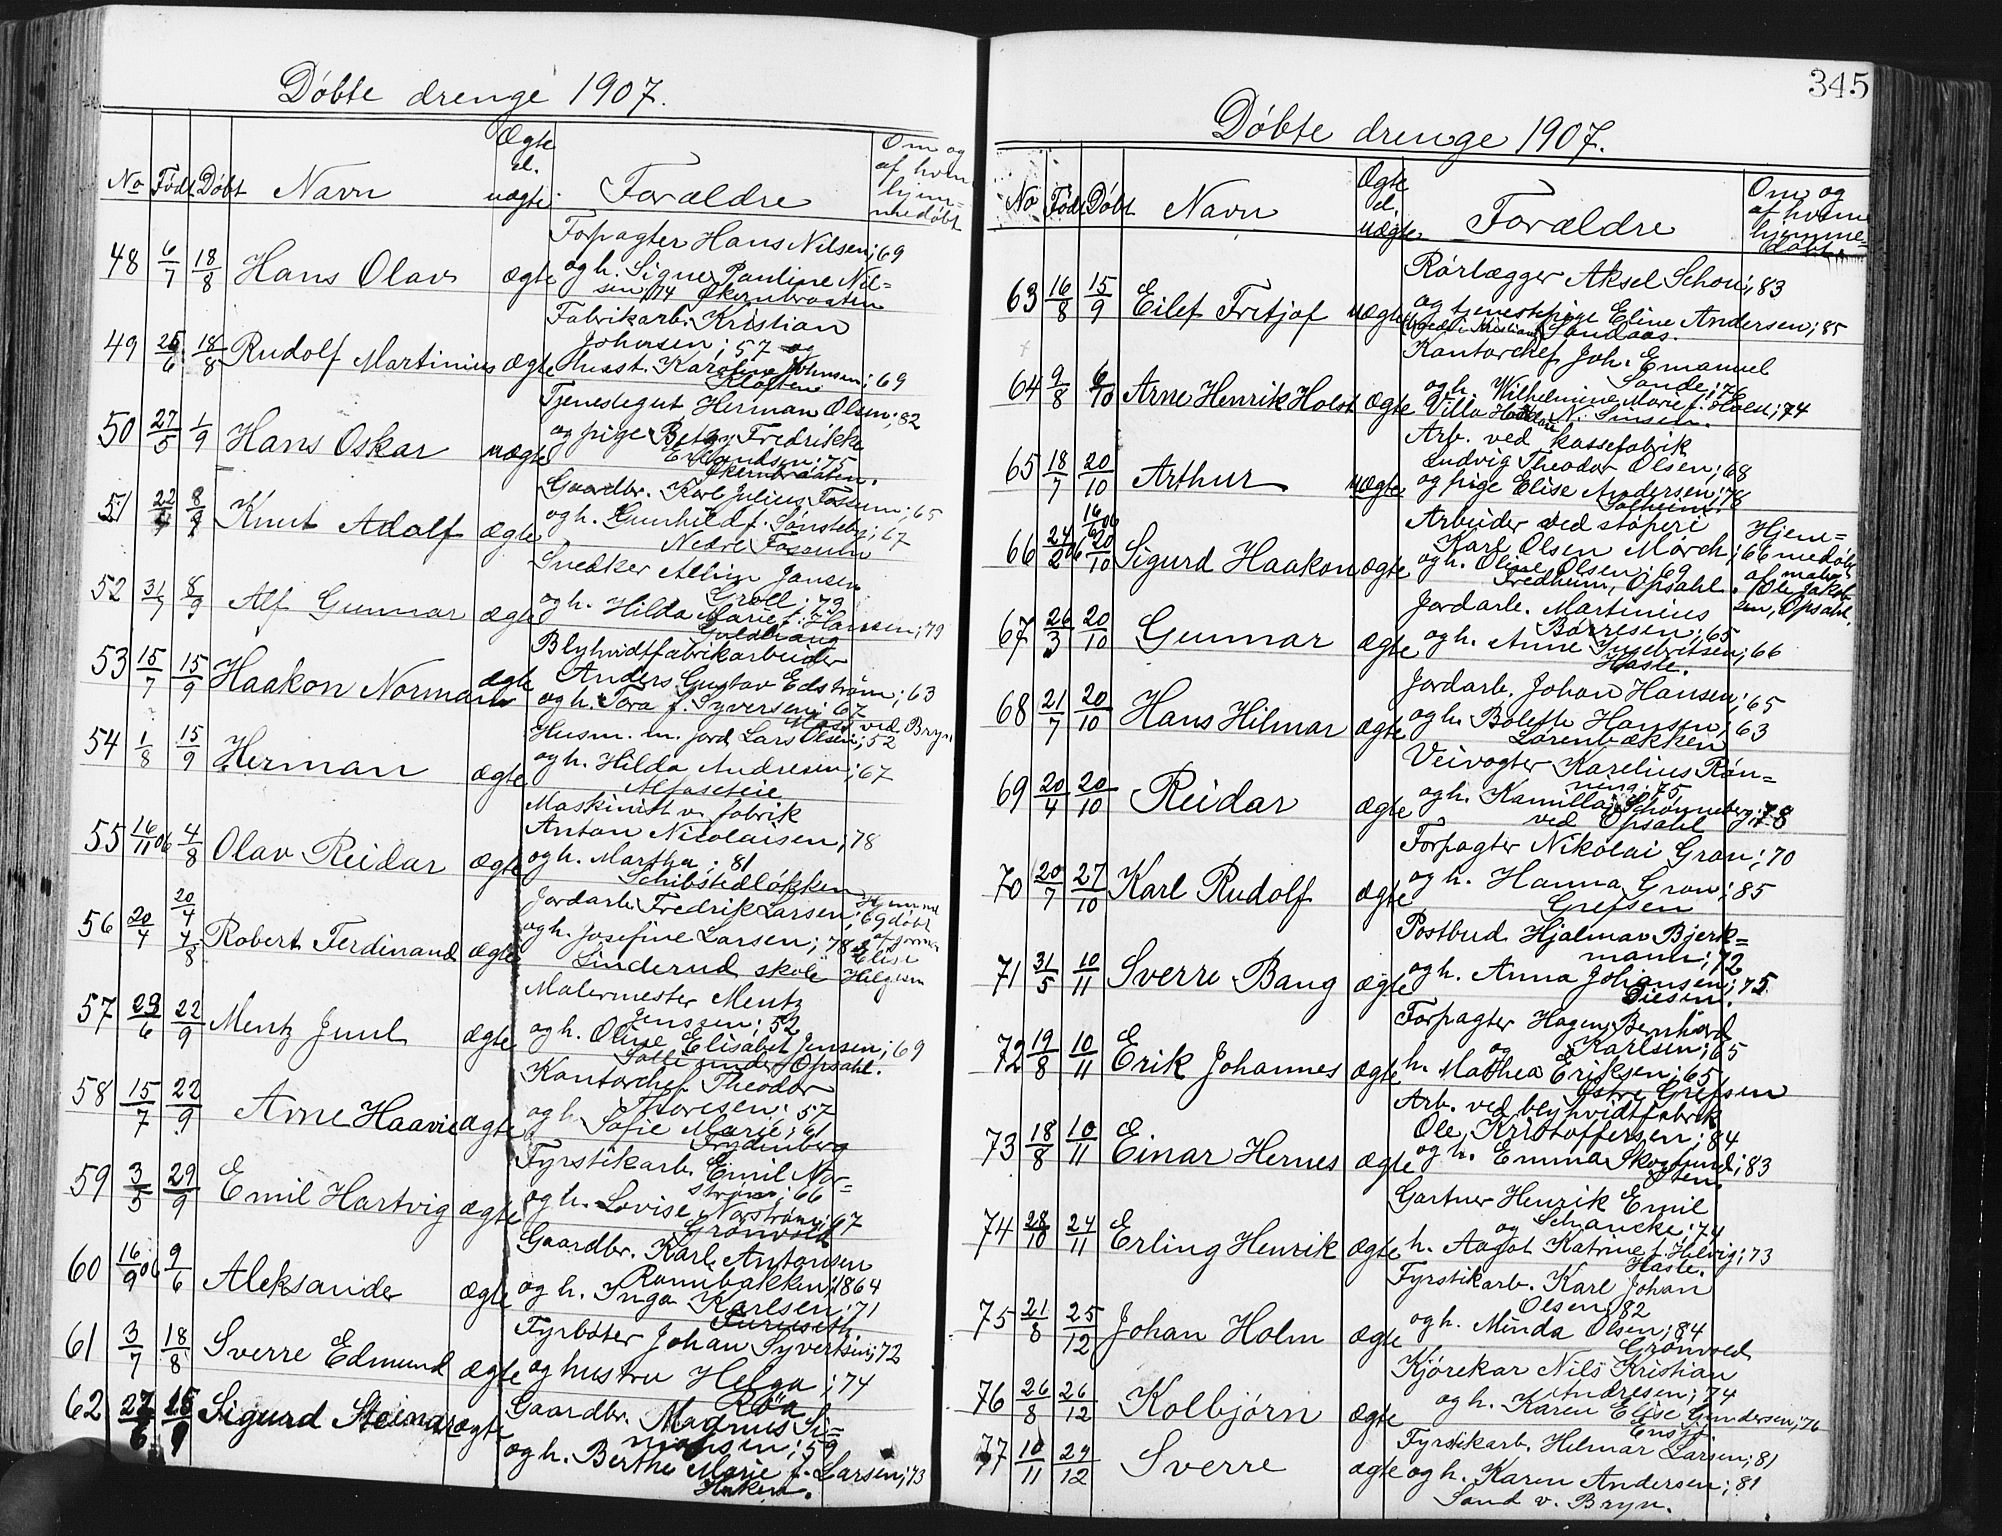 Döbte drenge 1907.
No Födt Döbt Navn Ægte el. uægte. Forældre Om og af hvem hjemmedöbt
48 6/7 18/8 Hans Olav ægte Forpagter Hans Nilsen; 69
og h. Signe Pauline Nil=
sen; 74 Økernbraaten
49 25/6 18/8 Rudolf Martinius ægte Fabrikarb. Kristian
Johnsen; 57 og
Husst. Karoline Johnsen; 69
Kloften
50 27/5 1/9 Hans Oskar uægte Tjenestegut Herman Olsen; 82
og pige Betsy Fredrikke
Erlandsen; 75
Økernbraaten.
51 22/4 8/9 Knut Adolf ægte Gaardbr. Karl Julius Fossum; 65
og h. Gunhild f. Sønsteby; 67
Nedre Fossum
52 31/7 8/9 Alf Gunnar ægte Snedker Albin Jansen
Groll; 79
og h. Hilda Marie f. Hansen; 79
Guldhaug
53 15/7 15/9 Haakon Normann ægte Blyhvidtfabrikarbeider
Anders Gustav Edström; 63
og h. Tora f. Syversen; 67
Moss ved Bryn
54 1/8 15/9 Herman ægte Husm. m. jord Lars Olsen; 52
og h. Hilda Andresen; 67
Alfaseteie
55 16/11 06 4/8 Olav Reidar ægte Maskinist v. fabrik
Anton Nicolaisen; 78
og h. Martha; 81
Schibstedløkken
56 20/4 20/4 4/8 Robert Ferdinand ægte Jordarb. Fredrik Larsen; 69
og h. Josefine Larsen; 78
Linderud skole
57 29/6 22/9 Mentz Juul ægte Malermester Mentz
Jenssen; 52
og h. Oline Elisabet Jensen; 69
under Opsahl.
58 15/7 22/9 Arne Haavie ægte Kontorchef Theodor
Thoresen; 57
og h. Sofie Marie; 61
Frydenberg
59 3/5 29/9 Emil Hartvig ægte Fyrstikarb. Emil Nor=
strøm; 66
og h. Lovise Norstrøm; 67
Grønvold
60 16/9 06 9/6 Aleksander ægte Gaardbr. Karl Antonsen
Rannbakken; 1864
og h. Inga Karlsen; 71
Furuseth
61 3/7 18/8 Sverre Edmund ægte Fyrbøter Johan Syvertsen; 72
og hustru Helga; 74
Röa
62 27/6 15/9 Sigurd Steinar ægte Gaardbr. Magnus Si=
monsen; 59
og h. Berthe Marie f. Larsen; 73
Haken.
345
Döbte drenge 1907.
No Födt Döbt Navn Ægte el. uægte Forældre Om og af hvem hjemme=döbt
63 16/8 15/9 Eilef Fritjof uægte Rörlægger Aksel Schou; 83
og tjenestepige Eline Andersen; 85
Sandaas.
64 9/8 6/10 Arne Henrik Holst ægte Kontorchef Joh. Emanuel
Sande; 76
og h. Wilhelmine Marie f. Holst; 74
Villa N. Sinsen.
65 18/7 20/10 Arthur uægte Arb. ved kassefabrik
Ludvig Theodor Olsen; 68
og pige Elise Andersen; 78
Solheim.
66 24/2 06 16/6 06 20/10 Sigurd Haakon ægte Arbeider ved støperi
Karl Olsen Mørch; 66
og h. Oline Olsen; 69
Fredheim, Opsahl.
Hjem=
medøbt
af maler
Ole Jakob
sen, Opsahl.
67 26/3 20/10 Gunnar ægte Jordarb. Martinius
Børresen; 65
og h. Anne Ingebritsen; 66
Hasle.
68 21/7 20/10 Hans Hilmar ægte Jordarb. Johan Hansen; 65
og h. Bolette Hansen; 63
Lørenbækken
69 20/4 20/10 Reidar ægte Veivogter Karelius Røn=
ning; 75
og h. Kamilla Schønneberg; 78
ved Opsahl
70 20/7 27/10 Karl Rudolf ægte Forpagter Nikolai Gran; 70
og h. Hanna Gran; 85
Grefsen
71 31/5 10/11 Sverre Bang ægte Postbud Hjalmar Bjerk=
mann; 72
og h. Anna Johansen; 75.
Disen.
72 19/8 10/11 Erik Johannes ægte Forpagter Hagen Bernhard
og Karlsen; 65
h. Mathea Eriksen; 65
Østre Grefsen
73 18/8 10/11 Einar Hernes ægte Arb. ved blyhvidtfabrik
Ole Kristoffersen; 84
og h. Emma Skoglund; 83
74 28/10 24/11 Erling Henrik ægte Gartner Henrik Emil
og Schancke; 74
h. Aagot Katrine f. Hilvig; 73
Hasle.
75 21/8 25/12 Johan Holm ægte Fyrstikarb. Karl Johan
Olsen; 82
og h. Minda Olsen; 84
Grønvold
76 26/8 26/12 Kolbjørn ægte Kjørekar Nils Kristian
Andresen; 74
og h. Karen Elise Gundersen; 76
Ensjø.
77 10/11 29/12 Sverre ægte Fyrstikarb. Hilmar Larsen; 81
og h. Karen Andersen; 81
Sand v. Bryn.